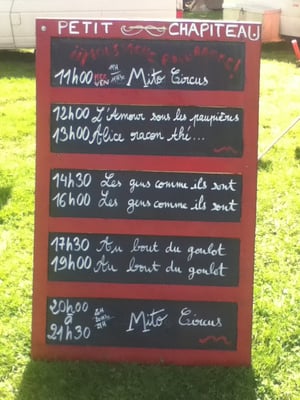 PETIT CHAPITEAU
11H00 Mito Circus
12H00 L'Amour sous les paupières
13H00 Alice racon Thé...
14H30 Les gens comme ils sont
16H00 Les gens comme ils sont
17H30 Au bout du goulot
19H00 Au bout du goulot
20H00
à Mito Circus
21H30